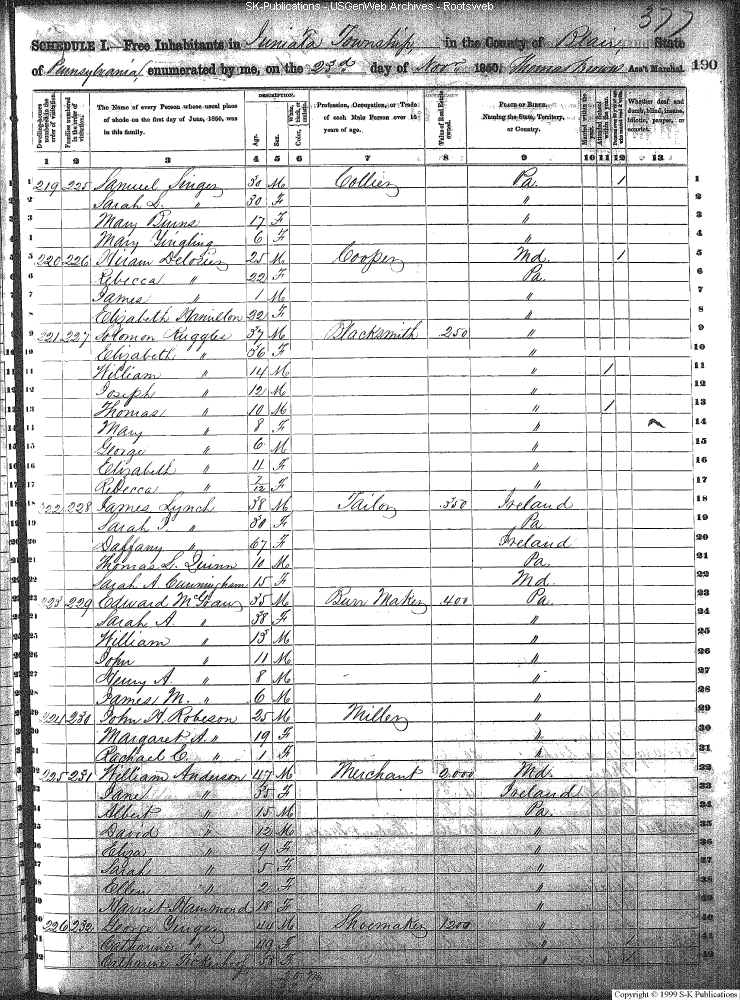 SK-Publications - USGenWeb Archives - Rootsweb
377
SCHEDULE I.—Free Inhabitants in Juniata Township in the County of Blair State
of Pennsylvania enumerated by me, on the 23d day of Nov. 1850. Thomas Ass't Marshal. 190
Dwelling-houses numbered in the order of visitation. Families numbered in the order of visitation. The Name of every Person whose usual place of abode on the first day of June, 1850, was in this family. DESCRIPTION. Age. Sex. Color, White, black, or mulatto. Profession, Occupation, or Trade of each Male Person over 15 years of age. Value of Real Estate owned. PLACE OF BIRTH. Naming the State, Territory, or Country. Married within the year. Attended School within the year. Whether deaf and dumb, blind, insane, idiotic, pauper, or convict.
1 2 3 4 5 6 7 8 9 10 11 12 13
1 219 225 Samuel Singer 30 M Collier Pa. 1 1
2 Sarah S. " 30 F " 2
3 Mary Burns 17 F " 3
4 Mary Yingling 6 F " 4
5 220 226 Hiram Delosier 25 M Cooper Md. 1 5
6 Rebecca " 22 F Pa. 6
7 James " 1 M " 7
8 Elizabeth Hamilton 22 F " 8
9 221 227 Solomon Ruggles 37 M Blacksmith 250 " 9
10 Elizabeth " 36 F " 10
11 William " 14 M " 1 11
12 Joseph " 12 M " 12
13 Thomas " 10 M " 1 13
14 Mary " 8 F " 14
15 George " 6 M " 15
16 Elizabeth " 4 F " 16
17 Rebecca " 7/12 F " 17
18 222 228 James Lynch 38 M Tailor 350 Ireland 18
19 Sarah J. " 30 F Pa 19
20 Daffany " 67 F Ireland 20
21 Thomas L. Quinn 10 M Pa. 21
22 Sarah A Cunningham 15 F Md. 22
23 223 229 Edward 35 M Burr Maker 400 Pa. 23
24 Sarah A. " 38 F " 24
25 William " 13 M " 25
26 John " 11 M " 26
27 Henry A. " 8 M " 27
28 James M. " 6 M " 28
29 224 230 John H. Robeson 25 M Miller " 29
30 Margaret A. " 19 F " 30
31 Rachael C. " 1 F " 31
32 225 231 William Anderson 47 M Merchant 2,000 Md. 32
33 Jane " 35 F Ireland 33
34 Albert " 15 M Pa. 34
35 David " 12 M " 35
36 Eliza " 9 F " 36
37 Sarah " 5 F " 37
38 Ellen " 2 F " 38
39 Harriet Hammond 18 F " 39
40 226 232 George 44 M Shoemaker 1200 " 40
41 Catharine " 49 F " 41
42 Catharine 38 F " 42
Copyright © 1999 S-K Publications